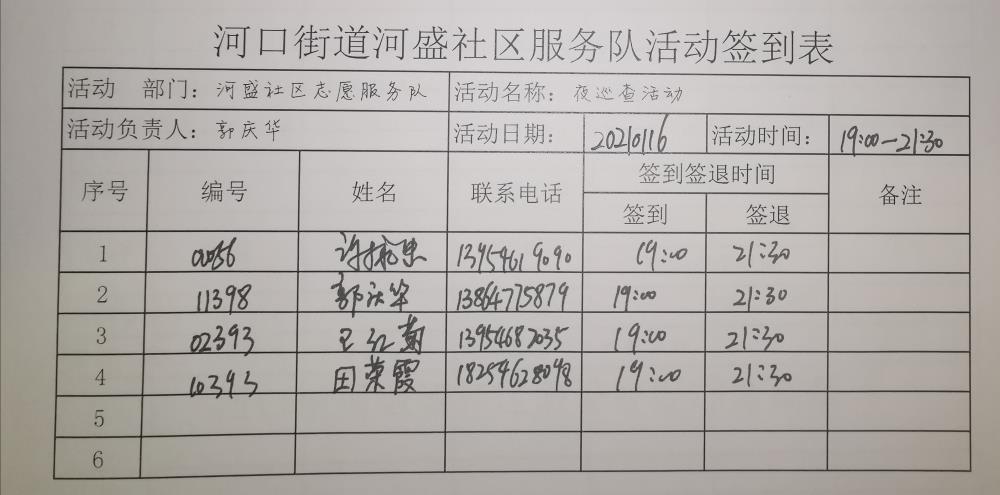 河口街道河盛社区服务队活动签到表
活动 部门：河盛社区志愿服务队 活动名称：夜巡查活动
活动负责人：郭庆华 活动日期：20210116 活动时间：19:00—21:30
序号 编号 姓名 联系电话 签到签退时间 备注
签到 签退
1 00056 许 忠 13954619090 19:00 21:30
2 11398 郭庆华 13864775879 19:00 21:30
3 02393 王红菊 13954682035 19:00 21:30
4 10393 田荣霞 18254628098 19:00 21:30
5
6